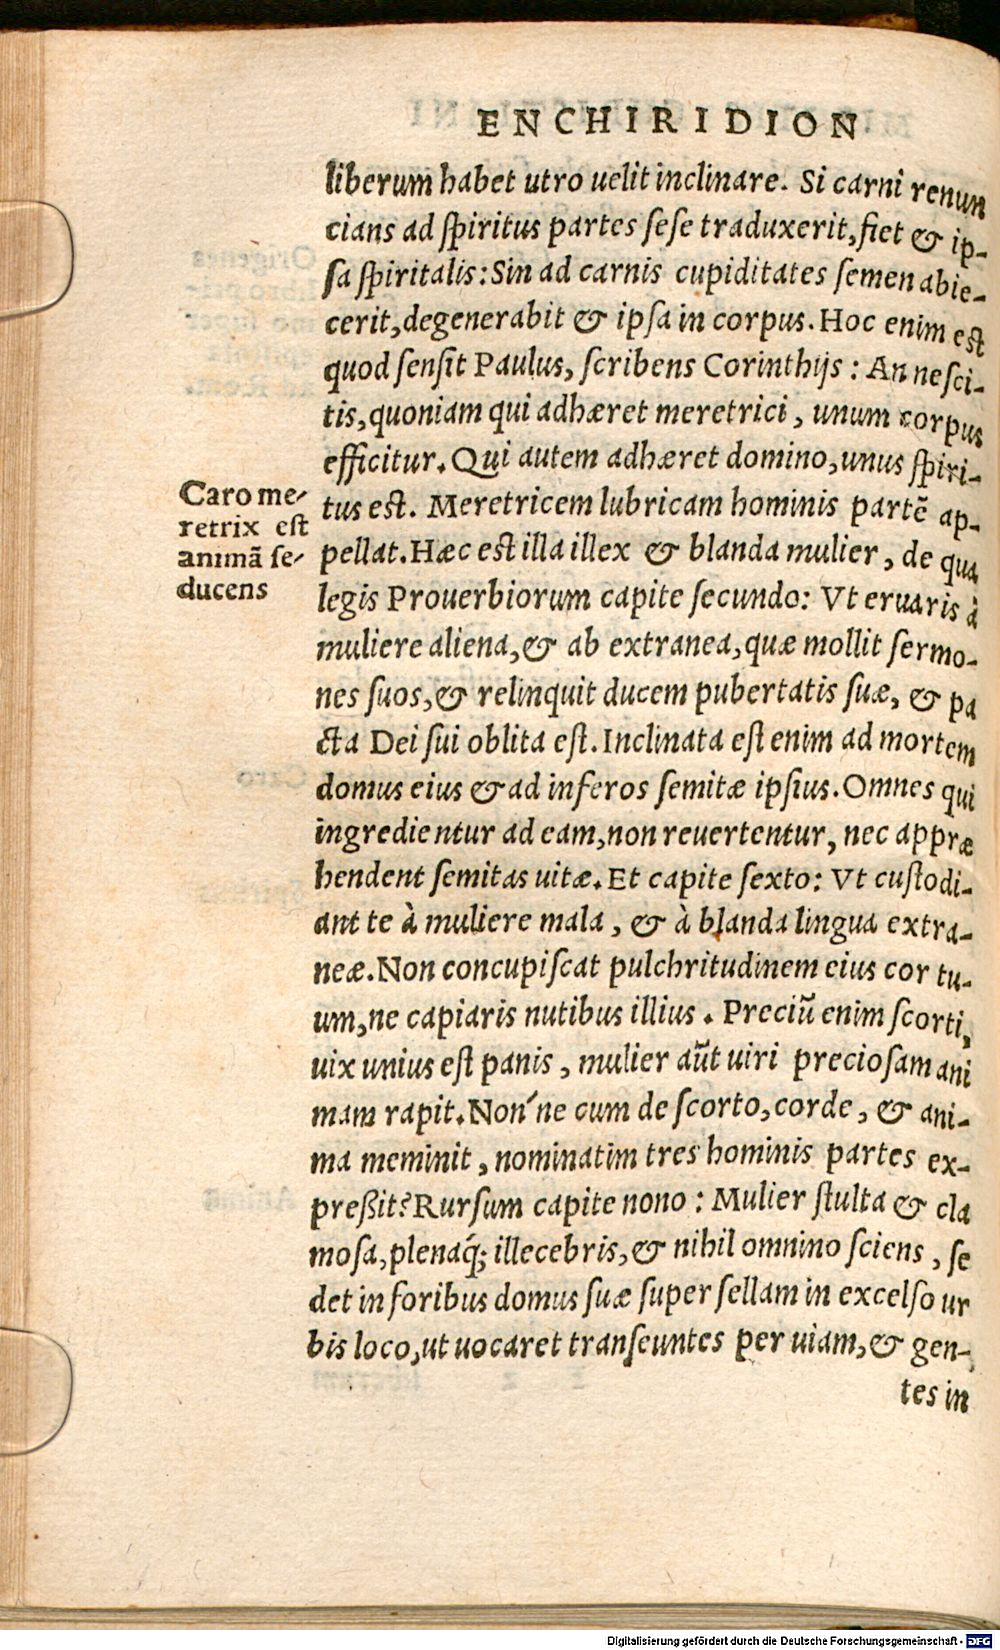 ENCHIRIDION
liberum habet utro uelit inclinare. Si carni renun
cians ad spiritus partes sese traduxerit, fiet & ip-
sa spiritalis: Sin ad carnis cupiditates semen abie-
cerit, degenerabit & ipsa in corpus. Hoc enim est
quod sensit Paulus, scribens Corinthijs : An nesci-
tis, quoniam qui adhæret meretrici, unum corpus
efficitur. Qui autem adhæret domino, unus spiri-
tus est. Meretricem lubricam hominis partē ap-
pellat. Hæc est illa illex & blanda mulier, de qua
legis Prouerbiorum capite secundo: Vt eruaris à
muliere aliena, & ab extranea, quæ mollit sermo-
nes suos, & relinquit ducem pubertatis suæ, & pa
cta Dei sui oblita est. Inclinata est enim ad mortem
domus eius & ad inferos semitæ ipsius. Omnes qui
ingredientur ad eam, non reuertentur, nec appræ
hendent semitas uitæ. Et capite sexto: Vt custodi-
ant te à muliere mala, & à blanda lingua extra-
neæ. Non concupiscat pulchritudinem eius cor tu-
um, ne capiaris nutibus illius. Preciū enim scorti,
uix unius est panis, mulier aūt uiri preciosam ani
mam rapit. Non'ne cum de scorto, corde, & ani-
ma meminit, nominatim tres hominis partes ex-
preßit? Rursum capite nono : Mulier stulta & cla
mosa, plenaq́; illecebris, & nihil omnino sciens, se
det in foribus domus suæ super sellam in excelso ur
bis loco, ut uocaret transeuntes per uiam, & gen-
tes in
Caro me-
retrix est
animā se-
ducens
Digitalisierung gefördert durch die Deutsche Forschungsgemeinschaft - DFG